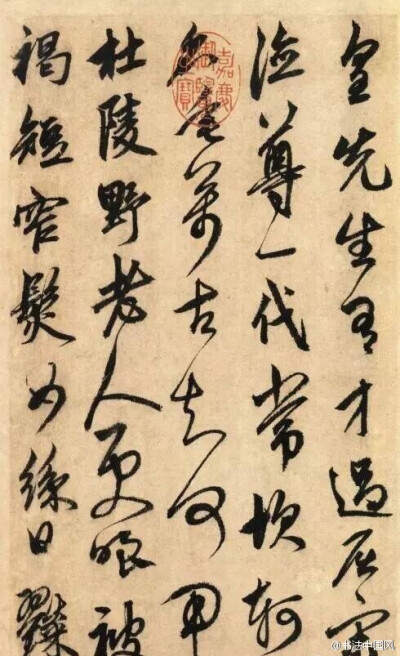 皇先生有才過屈宋
德尊一代常坎軻
名垂萬古知何用
杜陵野老人更嗤被
褐短窄鬢如絲日糴
嘉慶御覽之寶
@书法中国风